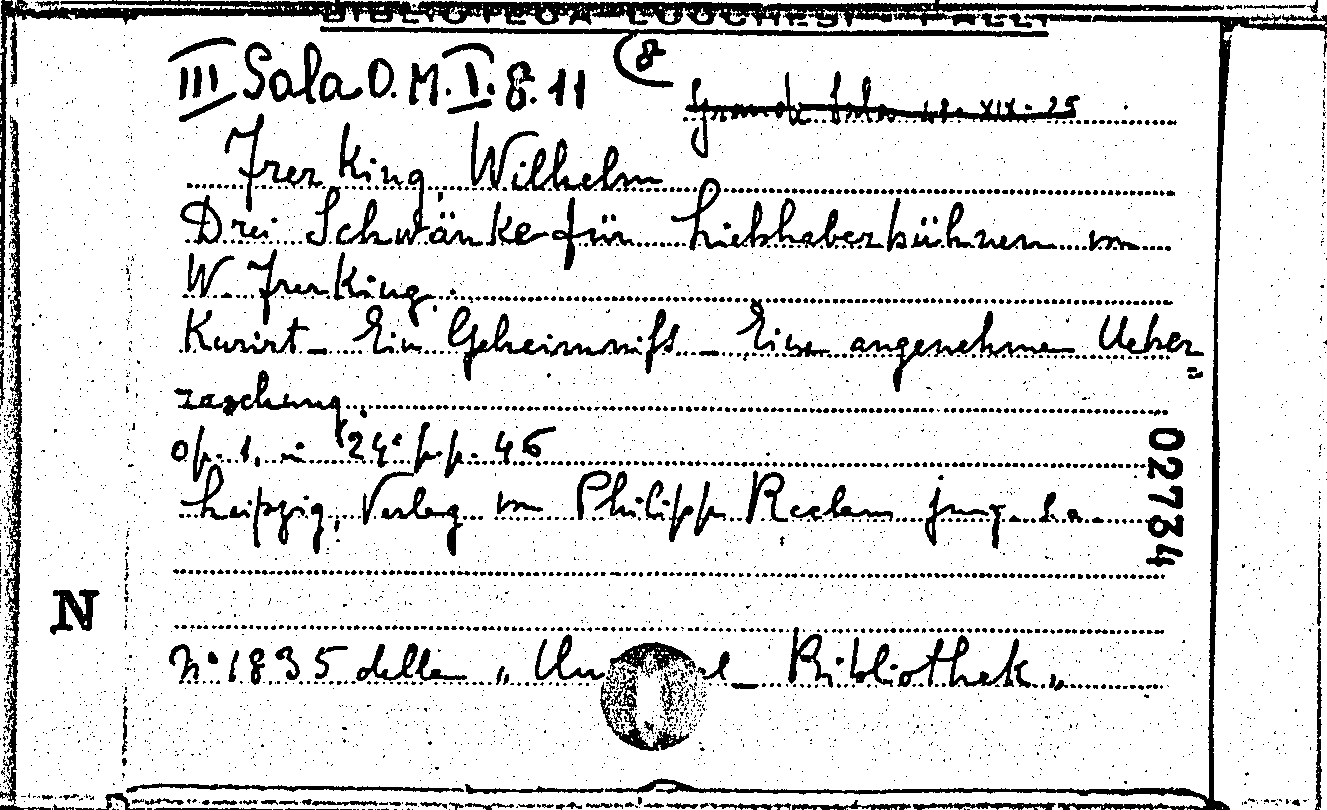 BIBLIOTECA LUCCHESI - PALLI
III Sala O. M. I. 8. 11 (8
Grande Sala 18. XIX. 25
Frerking, Wilhelm
Drei Schwänke für Liebhaberbühnen von
W. Frerking.
Kurirt _ Ein Geheimniss _ Eine angenehme Ueber„
raschung.
op. 1, in 24° p.p. 46
Leipzig, Verlag von Philipp Reclam jung. s.a.
02734
N
N° 1835 della „ Bibliothek „